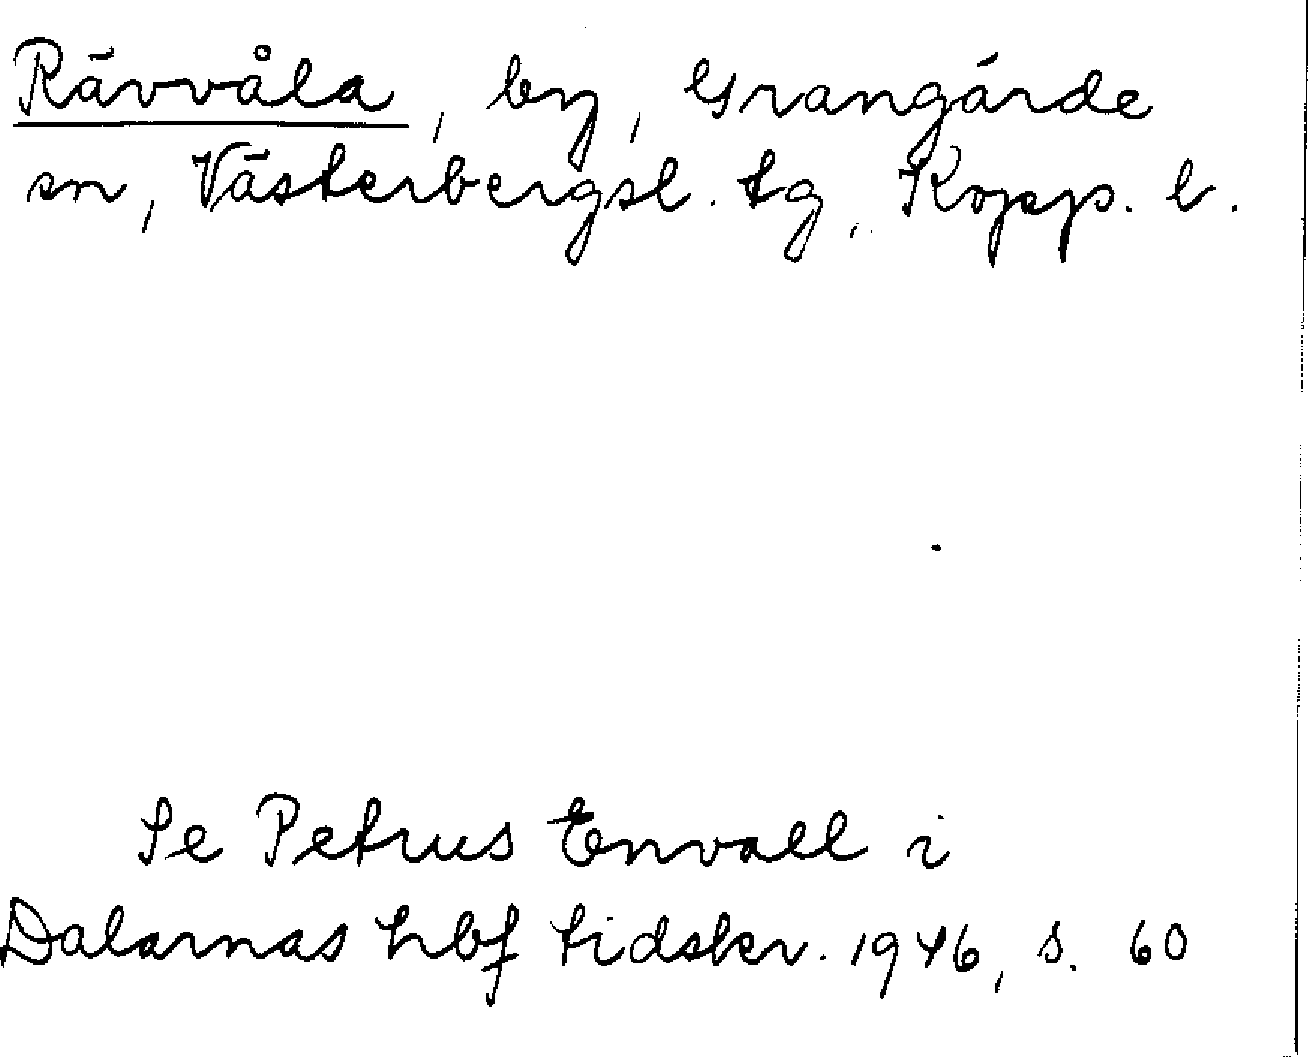 Rävvåla, by, Grangärde
sn, Västerbergsl. tg, Kopp. l.
Se Petrus Envall i
Dalarnas hbf tidskr. 1946, s. 60